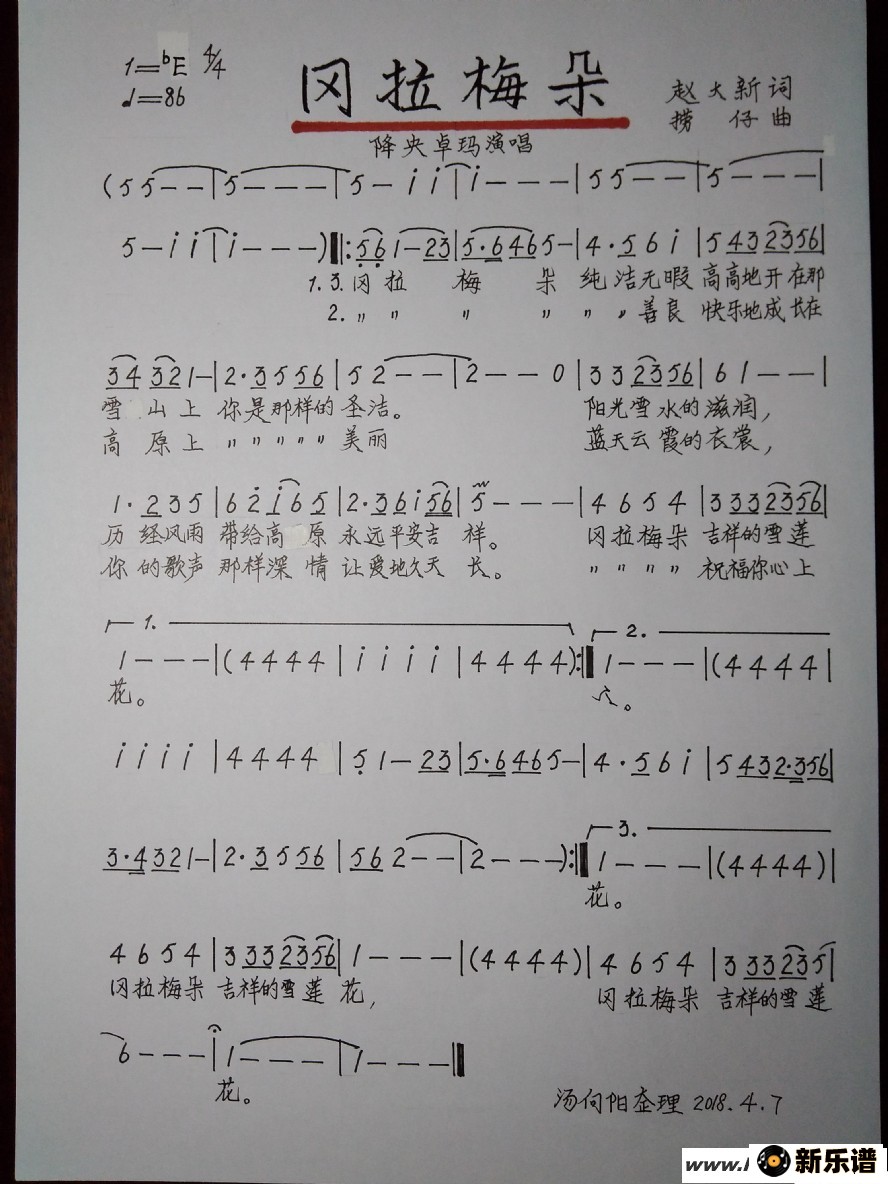 1=bE 4/4
♩=86
冈拉梅朵
赵大新词
捞仔曲
降央卓玛演唱
(5 5 - - | 5 - - - | 5 - i i | i - - - | 5 5 - - | 5 - - - |
5 - i i | i - - - ) ‖: 5 6 1 - 2 3 | 5 · 6 4 6 5 - | 4 · 5 6 i | 5 4 3 2 3 5 6 |
1. 3. 冈 拉 梅 朵 纯 洁 无 暇 高高地开在那
2. 〃 〃 〃 〃 〃 〃 善良 快乐地成长在
3 4 3 2 1 - | 2 · 3 5 5 6 | 5 2 - - | 2 - - 0 | 3 3 2 3 5 6 | 6 1 - - |
雪 山 上 你是那样的 圣洁。 阳光雪水的滋润,
高 原 上 〃 〃 〃 〃 〃 美丽 蓝天云霞的衣裳,
1 · 2 3 5 | 6 2 i 6 5 | 2 · 3 6 i 5 6 | 5 - - - | 4 6 5 4 | 3 3 3 2 3 5 6 |
历 经风雨 带给高 原 永远平安吉 祥。 冈拉梅朵 吉祥的雪莲
你 的歌声 那样深 情 让爱地久天 长。 〃 〃 〃 〃 祝福你心上
1. 2.
1 - - - | (4 4 4 4 | i i i i | 4 4 4 4 ) :‖ 1 - - - | (4 4 4 4 |
花。
i i i i | 4 4 4 4 | 5 1 - 2 3 | 5 · 6 4 6 5 - | 4 · 5 6 i | 5 4 3 2 · 3 5 6 |
3.
3 · 4 3 2 1 - | 2 · 3 5 5 6 | 5 6 2 - - | 2 - - - ) :‖ 1 - - - | (4 4 4 4 ) |
花。
4 6 5 4 | 3 3 3 2 3 5 6 | 1 - - - | (4 4 4 4 ) | 4 6 5 4 | 3 3 3 2 3 5 |
冈拉梅朵 吉祥的雪 莲 花, 冈拉梅朵 吉祥的雪莲
6 - - - | 1 - - - | 1 - - - ‖
花。
汤向阳整理 2018.4.7
www. 新乐谱